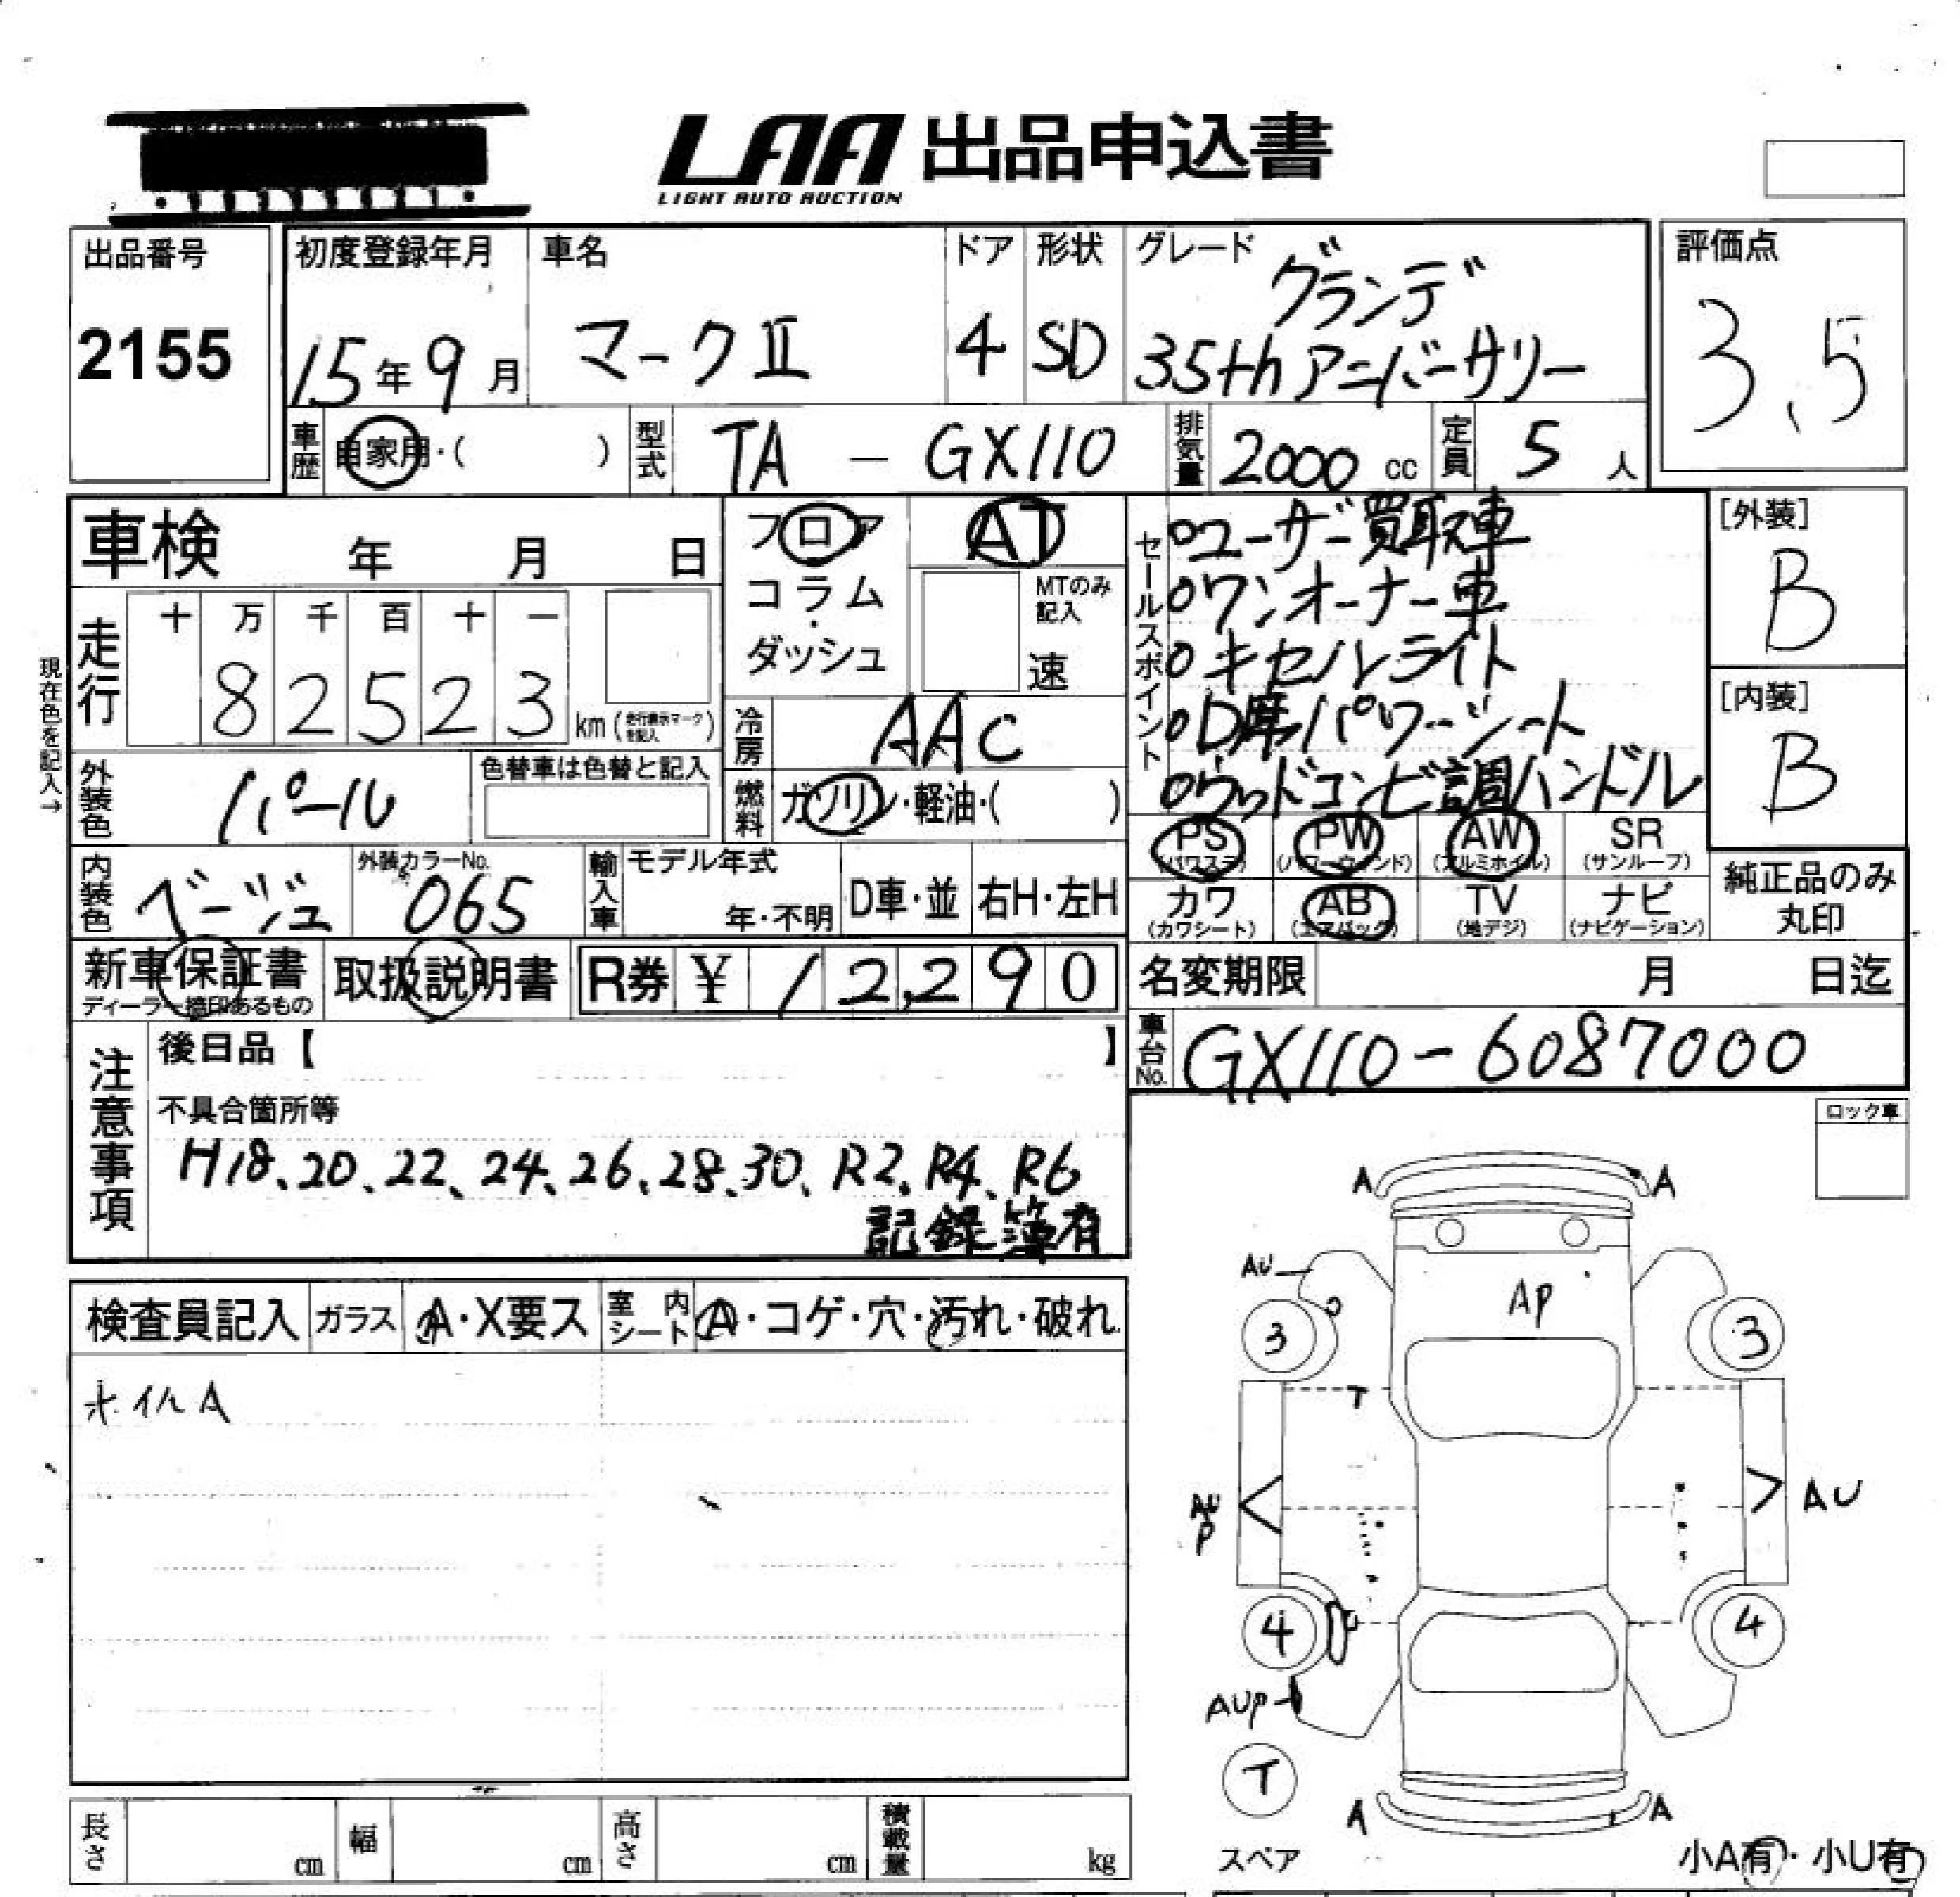 LAA 出品申込書
LIGHT AUTO AUCTION
出品番号
2155
初度登録年月
15年9月
車名
マークⅡ
ドア
4
形状
SD
グレード
グランデ
35thアニバーサリー
評価点
3.5
車歴
自家用・( )
型式
TA - GX110
排気量
2000 cc
定員
5 人
車検 年 月 日
フロア
コラム
・
ダッシュ
AT
MTのみ
記入
速
現在色を記入→
走行
十 万 千 百 十 一
8 2 5 2 3
km (走行表示マークを記入)
冷房
AAC
外装色
パール
色替車は色替と記入
燃料
ガソリン・軽油・( )
セールスポイント
○ユーザー買取車
○ワンオーナー車
○キセノンライト
○D席パワーシート
○ウッドコンビ調ハンドル
[外装]
B
[内装]
B
PS
(パワステ)
PW
(パワーウィンド)
AW
(アルミホイル)
SR
(サンルーフ)
カワ
(カワシート)
AB
(エアバッグ)
TV
(地デジ)
ナビ
(ナビゲーション)
純正品のみ
丸印
内装色
ベージュ
外装カラーNo.
065
輸入車
モデル年式
年・不明
D車・並
右H・左H
新車保証書
ディーラー捺印あるもの
取扱説明書
R券 ¥ 12,290
名変期限 月 日迄
車台No.
GX110-6087000
注意事項
後日品【 】
不具合箇所等
H18、20、22、24、26、28、30、R2、R4、R6
記録簿有
ロック車
検査員記入
ガラス
A・X要ス
室内シート
A・コゲ・穴・汚れ・破れ
ホイルA
A A
AU
AP
3 3
T
AU
P
AU
4 4
U
AUP
T
スペア
A A
小A有・小U有
長さ cm
幅 cm
高さ cm
積載量 kg